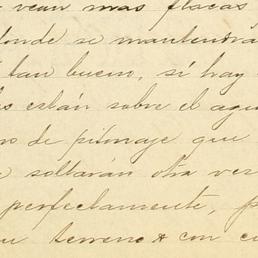 vean mas flacas
donde se mantendrá
tan bueno, si hay
están sobre el agu
de pilonaje que
soltarán otra vez
perfectamente, p
terreno & con c